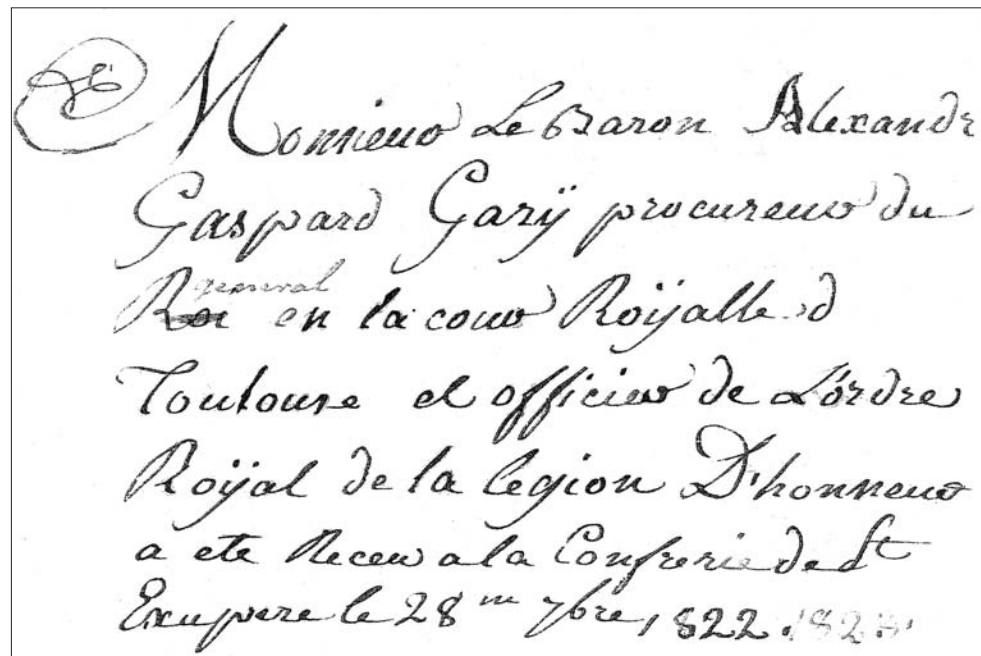 Monsieur Le Baron Alexandr
Gaspard Garÿ procureur du
general
Roi en la cour Roÿalle d
Toulouse et officier de L'ordre
Roÿal de la legion D'honneur
a ete Receu a la Confrerie de St
Exupere le 28 7bre, 1822. 1823.